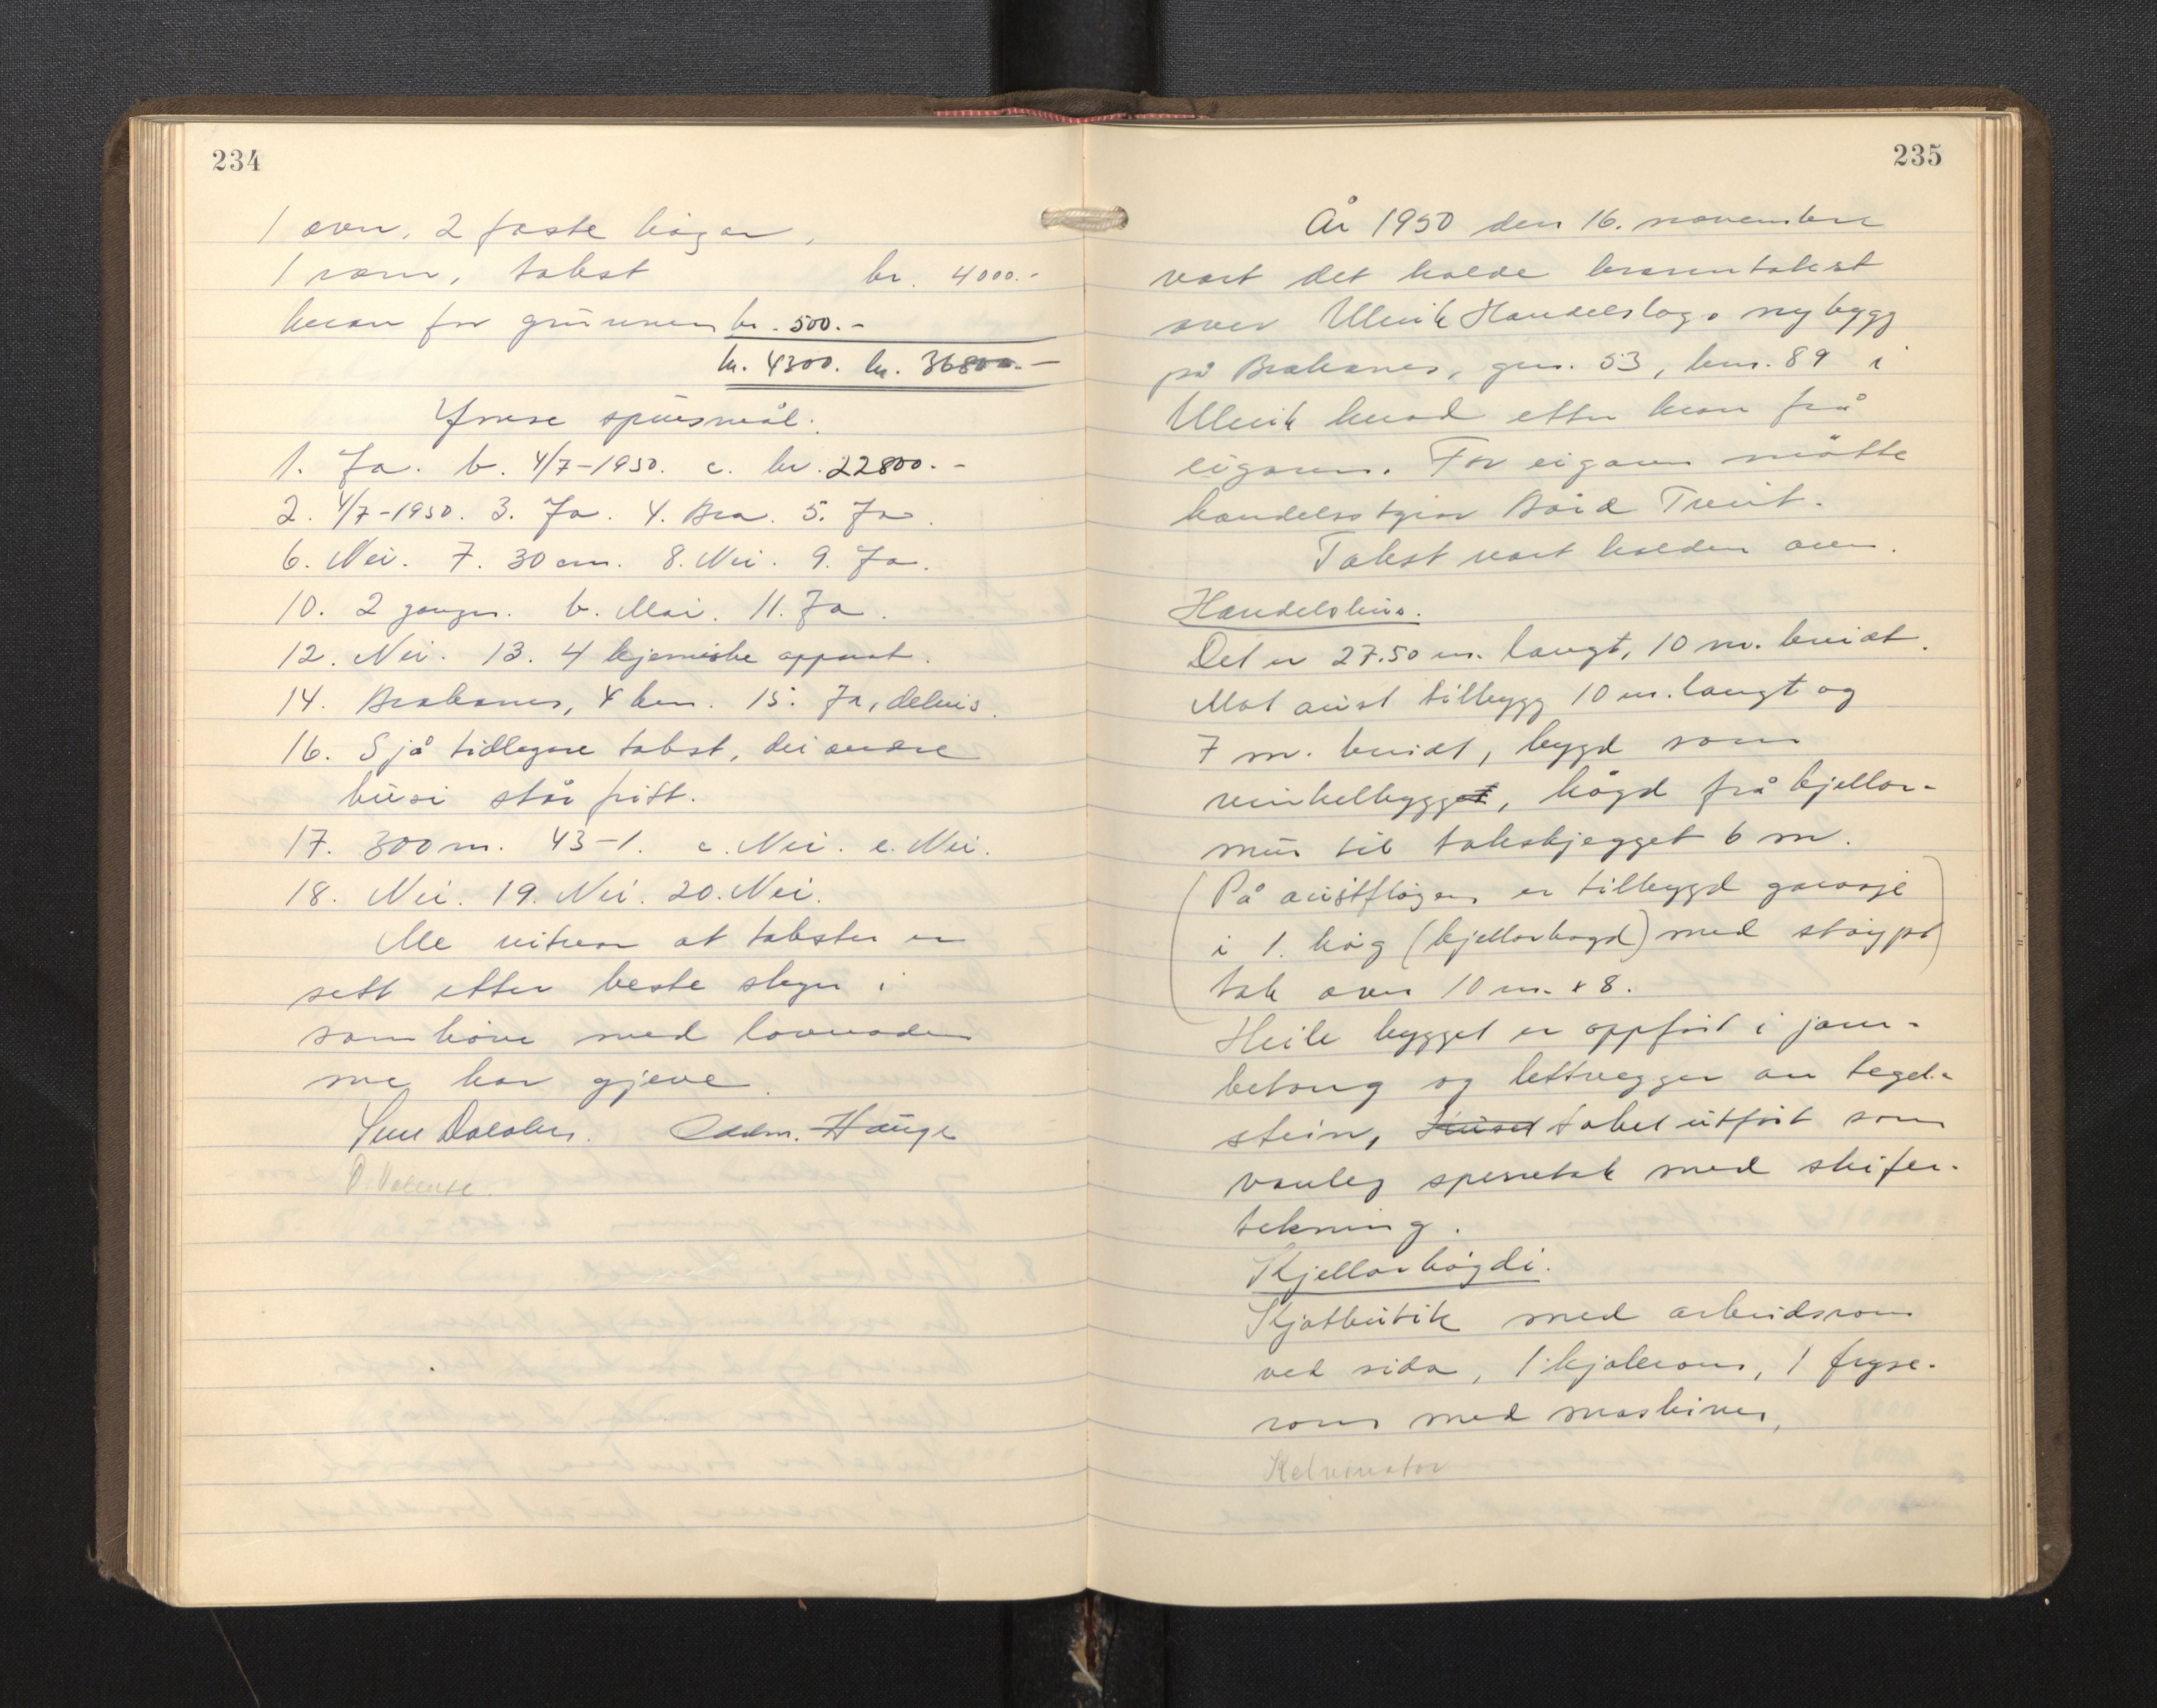 234
1 ovn, 2 faste högar,
1 rom, takst kr. 4000.-
herav for grunnen kr. 500.-
kr. 4300. kr. 36800.-
Ymse spursmål.
1. Ja. b. 4/7-1950. c. kr. 22800.-
2. 4/7-1950. 3. Ja. 4. Bra. 5. Ja.
6. Nei. 7. 30 cm. 8. Nei. 9. Ja.
10. 2 ganger. b. Mai. 11. Ja.
12. Nei. 13. 4 kjemiske apparat.
14. Brakanes, 4 km. 15. Ja, delvis.
16. Sjå tidlegare takst, dei andre
husi står fritt.
17. 300 m. 43-1. c. Nei. e. Nei.
18. Nei. 19. Nei. 20. Nei.
Me vitnar at taksten er
sett etter beste skyn i
samhöve med lovnaden
me har gjeve.
Hauge
235
År 1950 den 16. november
vart det halde branntakst
over Ulvik Handelslags nybygg
på Brakanes, gnr. 53, bnr. 89 i
Ulvik herad etter krav frå
eigaren. For eigaren mötte
handelsstyrar Bård Tveit.
Takst vart halden over.
Handelshus.
Det er 27.50 m. langt, 10 m. breidt.
Mot aust tilbygg 10 m. langt og
7 m. breidt, bygd som
vinkelbygget, högd frå kjellar-
mur til takskjegget 6 m.
(På austflögen er tilbygd garasje
i 1. hög (kjellarhögd) med støypt
tak over 10 m. x 8.)
Heile bygget er oppfört i jarn-
betong og lettvegger av tegel-
stein, Huset taket utfört som
vanleg sperretak med skifer-
tekning.
Kjellarhögdi.
Kjötbutik med arbeidsrom
ved sida, 1 kjølerom, 1 fryse-
rom med maskiner,
Kelvinator